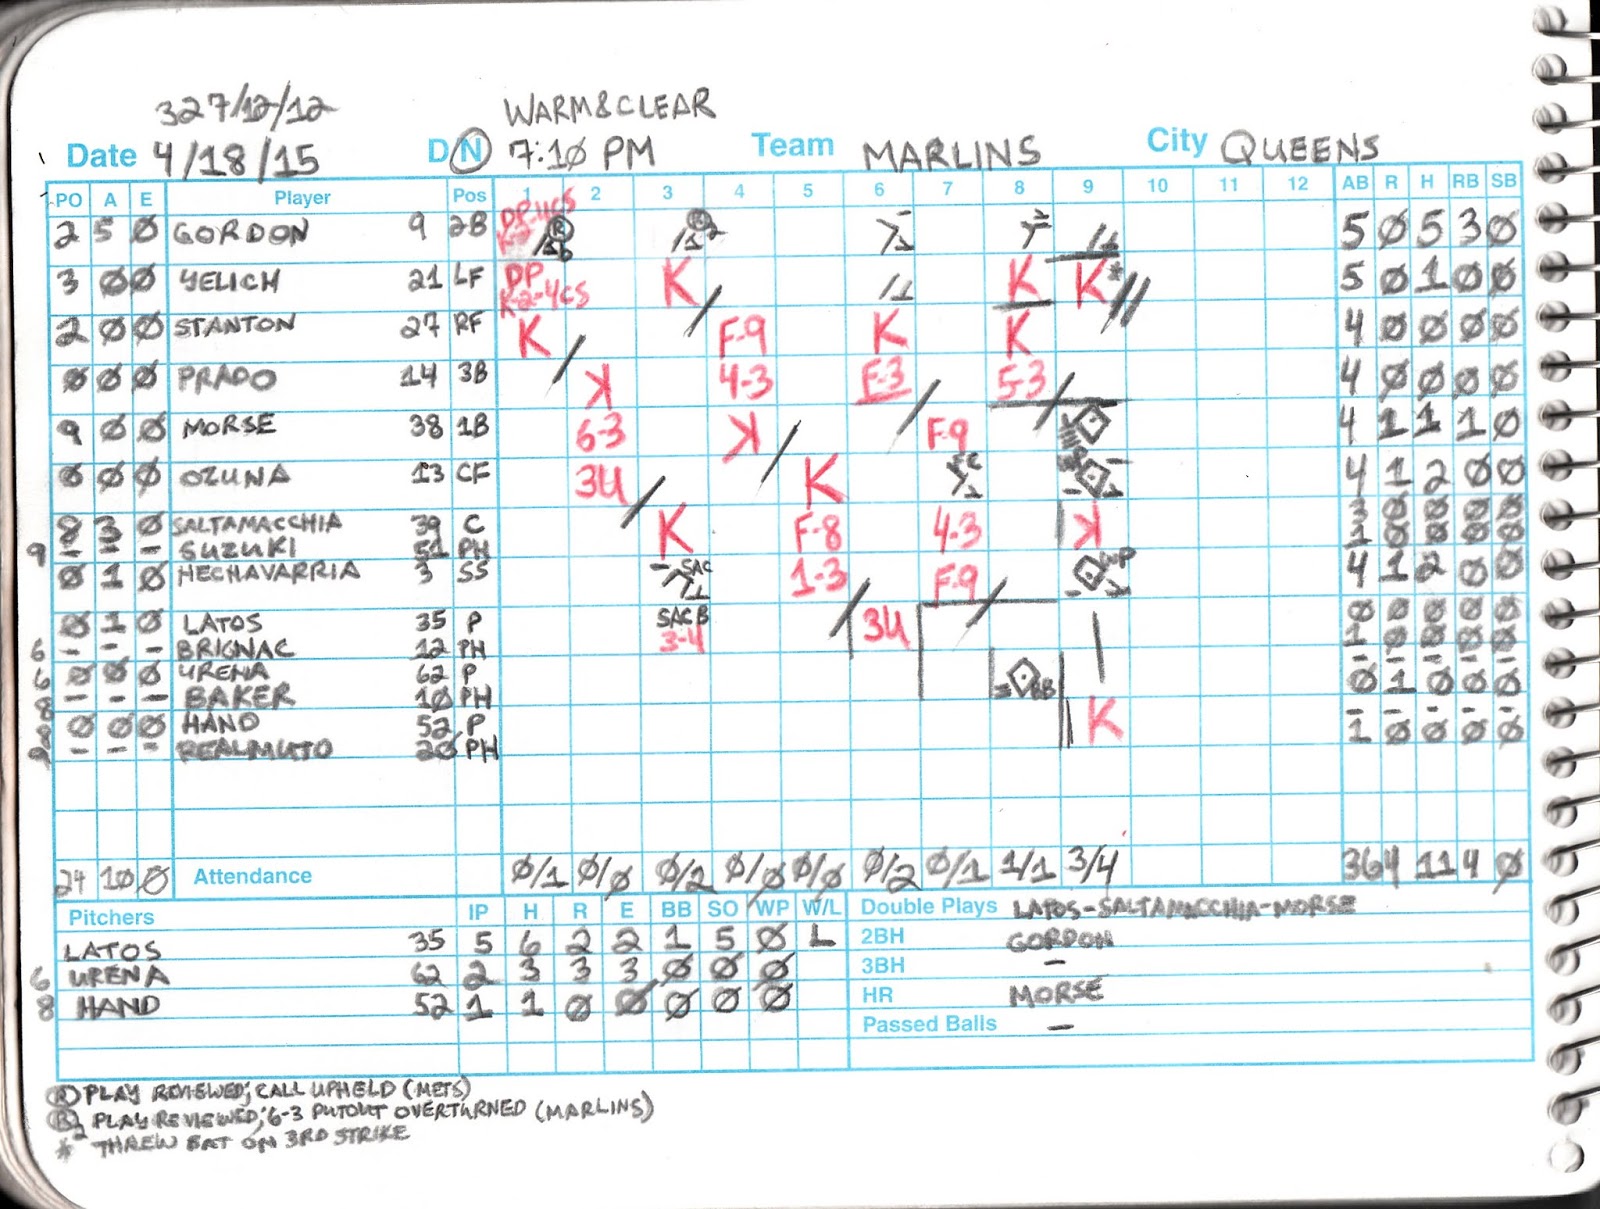 327/12/12 WARM&CLEAR
Date 4/18/15 D N 7:10 PM Team MARLINS City QUEENS
PO A E Player Pos 1 2 3 4 5 6 7 8 9 10 11 12 AB R H RB SB
2 5 Ø GORDON 9 2B DP-4CS R 1b R2 5 Ø 5 3 Ø
3 Ø Ø YELICH 21 LF DP K-2-4CS K K K* 5 Ø 1 Ø Ø
2 Ø Ø STANTON 27 RF K F-9 K K 4 Ø Ø Ø Ø
Ø Ø Ø PRADO 14 3B K 4-3 F-3 5-3 4 Ø Ø Ø Ø
9 Ø Ø MORSE 38 1B 6-3 K F-9 4 1 1 1 Ø
Ø Ø Ø OZUNA 13 CF 3U K FC 4 1 2 Ø Ø
8 3 Ø SALTAMACCHIA 39 C K F-8 4-3 K 3 Ø Ø Ø Ø
9 - - - SUZUKI 51 PH 1 Ø Ø Ø Ø
Ø 1 Ø HECHAVARRIA 3 SS SAC 1-3 F-9 WP 4 1 2 Ø Ø
Ø 1 Ø LATOS 35 P SACB 3-4 3U Ø Ø Ø Ø Ø
6 - - - BRIGNAC 12 PH 1 Ø Ø Ø Ø
6 Ø Ø Ø URENA 62 P BB - - - - -
8 - - - BAKER 10 PH Ø 1 Ø Ø Ø
8 Ø Ø Ø HAND 52 P K - - - - -
9 - - - REALMUTO 20 PH 1 Ø Ø Ø Ø
24 10 Ø Attendance Ø/1 Ø/Ø Ø/2 Ø/Ø Ø/Ø Ø/2 Ø/1 1/1 3/4 36 4 11 4 Ø
Pitchers IP H R E BB SO WP W/L Double Plays LATOS-SALTAMACCHIA-MORSE
LATOS 35 5 6 2 2 1 5 Ø L 2BH GORDON
6 URENA 62 2 3 3 3 Ø Ø Ø 3BH -
8 HAND 52 1 1 Ø Ø Ø Ø Ø HR MORSE
Passed Balls -
R PLAY REVIEWED; CALL UPHELD (METS)
R2 PLAY REVIEWED; 6-3 PUTOUT OVERTURNED (MARLINS)
* THREW BAT ON 3RD STRIKE